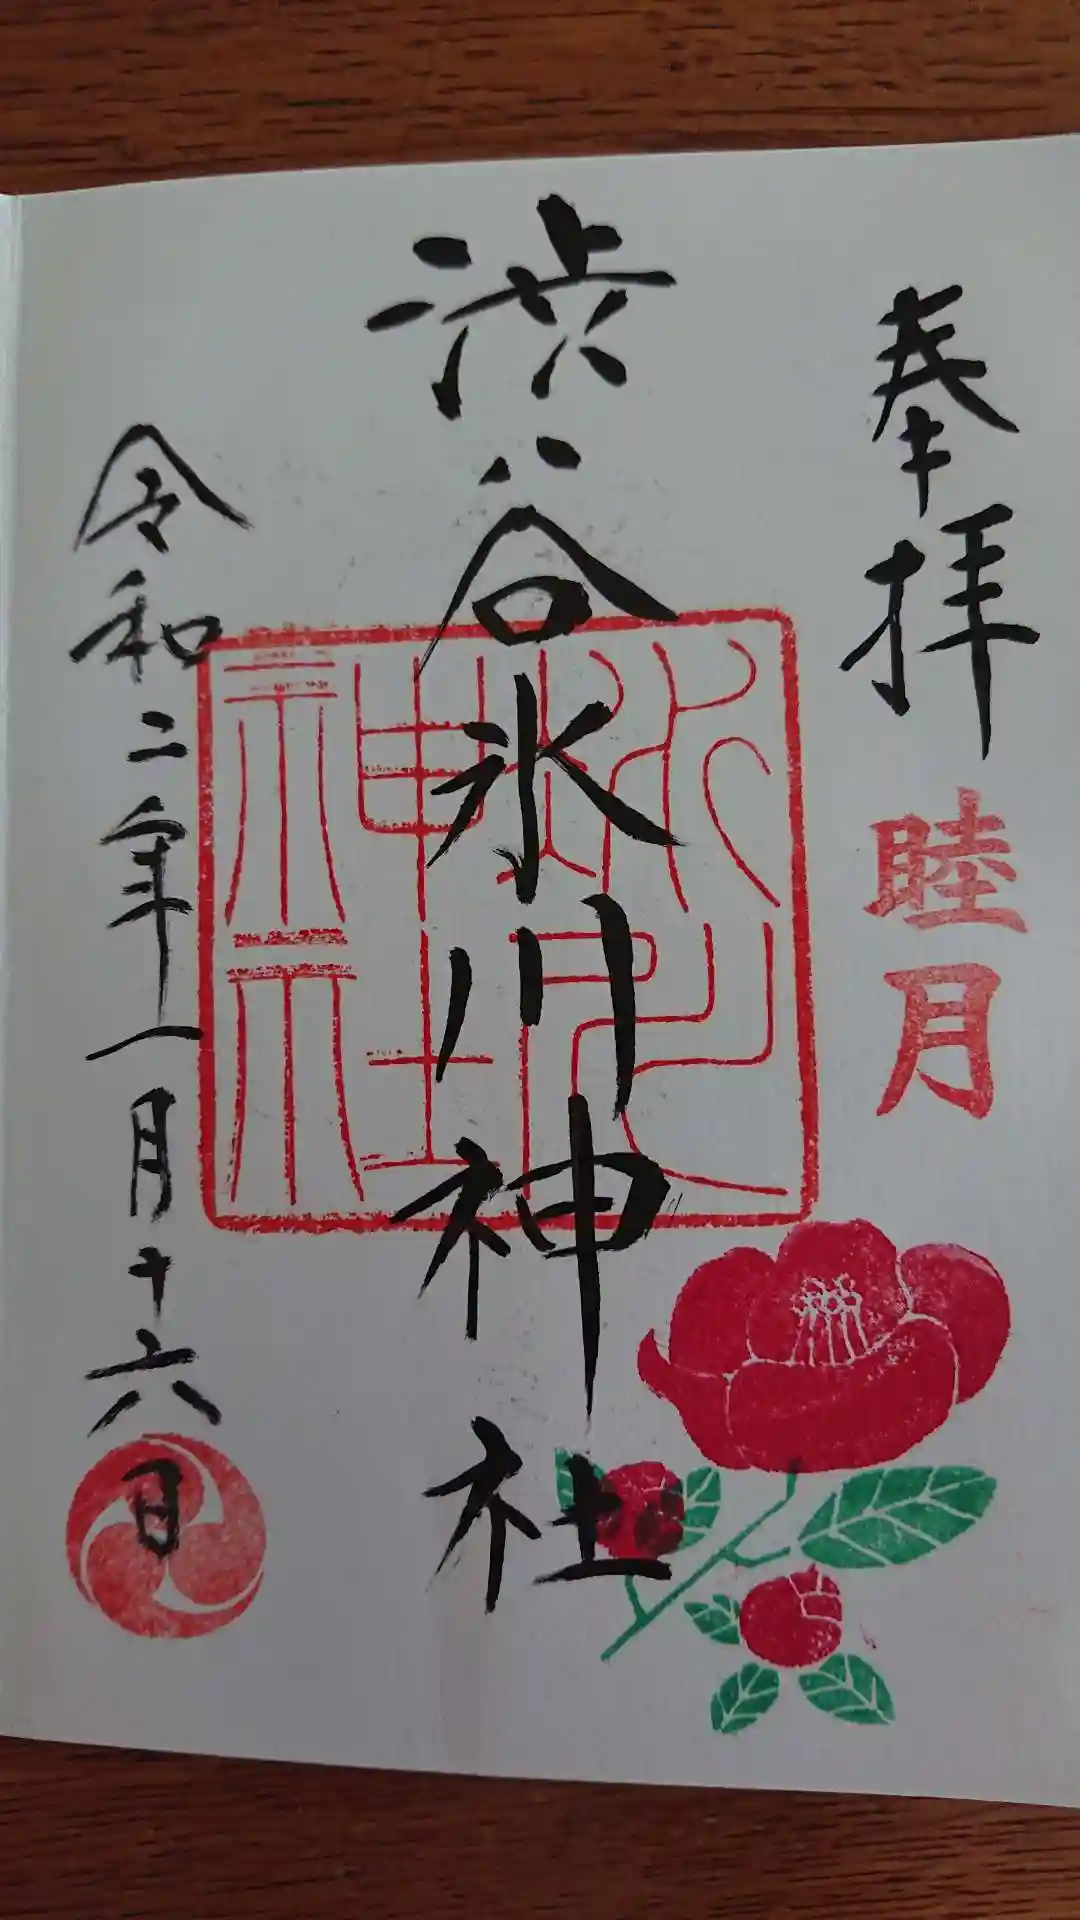 奉拝
睦月
渋谷氷川神社
令和二年一月十六日